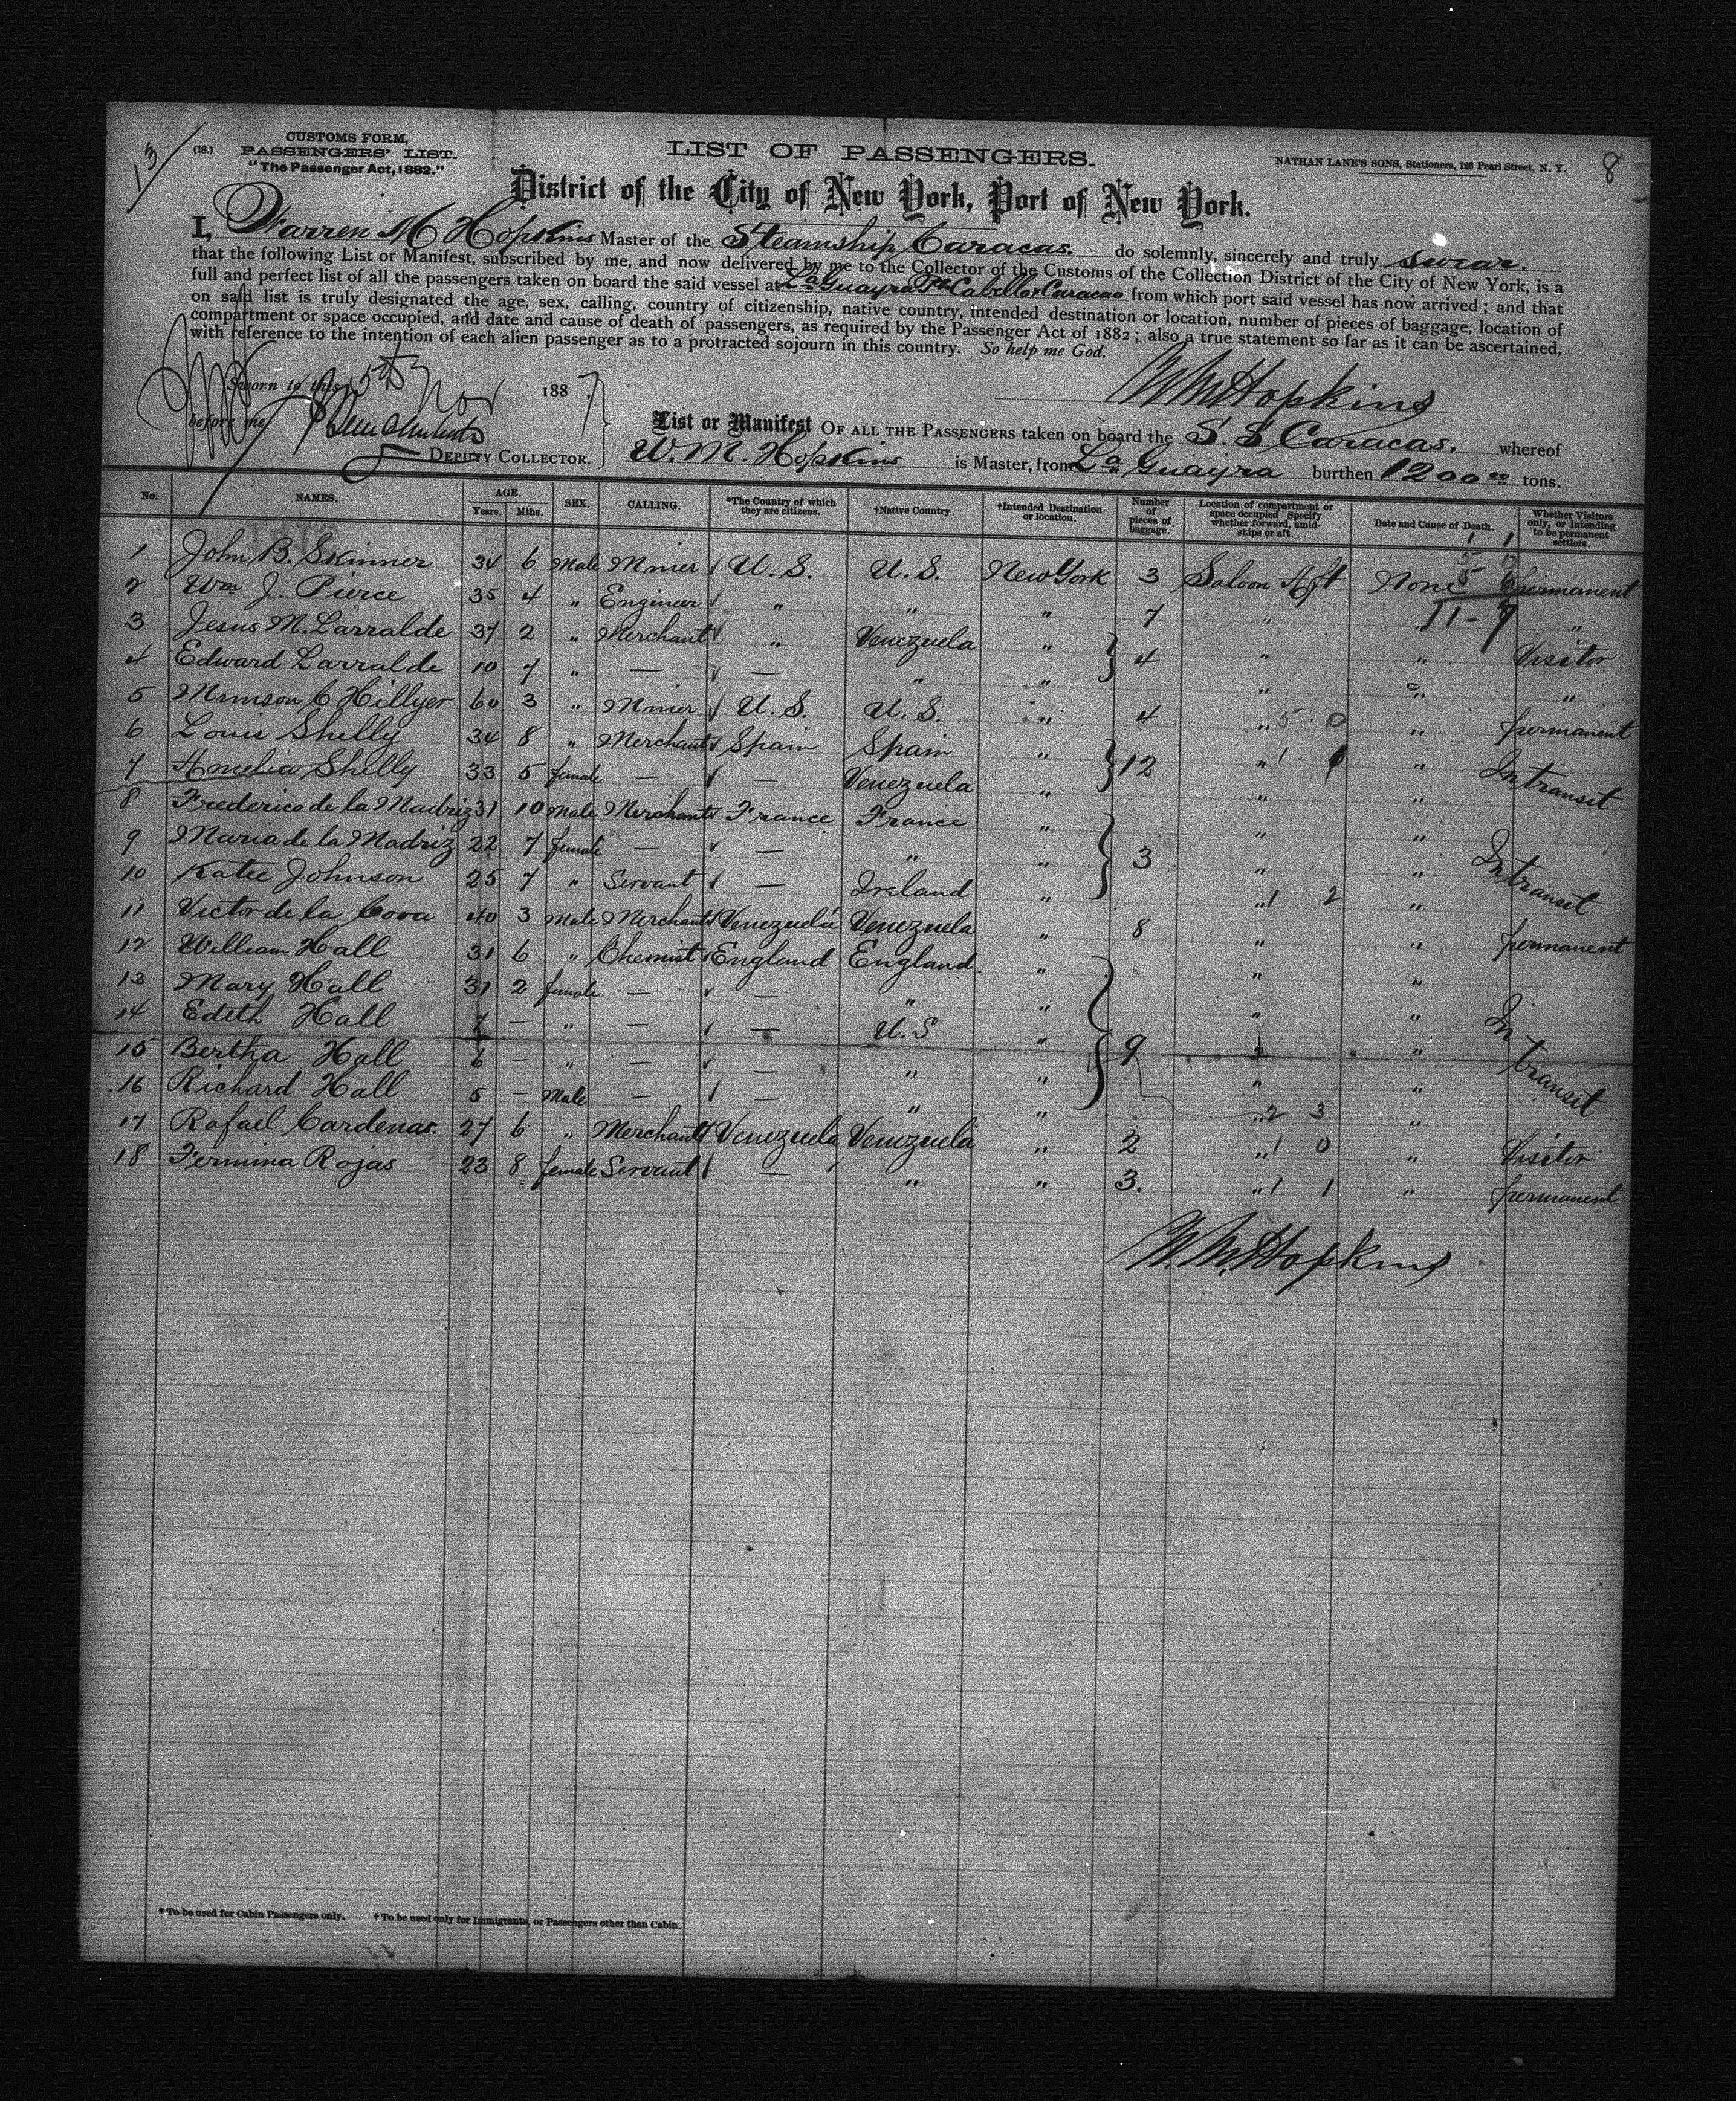 13
(18.)
CUSTOMS FORM,
PASSENGERS' LIST.
"The Passenger Act, 1882."
LIST OF PASSENGERS.
NATHAN LANE'S SONS, Stationers, 126 Pearl Street, N. Y.
8
District of the City of New York, Port of New York.
I, Warren M Hopkins Master of the Steamship Caracas. do solemnly, sincerely and truly swear.
that the following List or Manifest, subscribed by me, and now delivered by me to the Collector of the Customs of the Collection District of the City of New York, is a
full and perfect list of all the passengers taken on board the said vessel at La Guayra Pto Cabello, Curacao from which port said vessel has now arrived; and that
on said list is truly designated the age, sex, calling, country of citizenship, native country, intended destination or location, number of pieces of baggage, location of
compartment or space occupied, and date and cause of death of passengers, as required by the Passenger Act of 1882; also a true statement so far as it can be ascertained,
with reference to the intention of each alien passenger as to a protracted sojourn in this country. So help me God.
Sworn to this 15th Nov 1887
before me
W M Hopkins
DEPUTY COLLECTOR.
List or Manifest OF ALL THE PASSENGERS taken on board the S. S Caracas. whereof
W. M. Hopkins is Master, from La Guayra burthen 1200 00 tons.
No. NAMES. AGE. Years. Mths. SEX. CALLING. *The Country of which they are citizens. †Native Country. †Intended Destination or location. Number of pieces of baggage. Location of compartment or space occupied Specify whether forward, amidships or aft. Date and Cause of Death. Whether Visitors only, or intending to be permanent settlers.
1 John B. Skinner 34 6 Male Miner U. S. U. S. New York 3 Saloon Aft None permanent
2 Wm J. Pierce 35 4 " Engineer " " " 7 " 11-7 "
3 Jesus M. Larralde 37 2 " Merchant " Venezuela " 4 " " Visitor
4 Edward Larralde 10 7 " — — " " " " "
5 Munson C Hillyer 60 3 " Miner U. S. U. S. " 4 " 5 0 " permanent
6 Louis Shelly 34 8 " Merchant Spain Spain " 12 " 1 1 " In transit
7 Amelia Shelly 33 5 female — — Venezuela " " "
8 Frederico de la Madriz 31 10 Male Merchant France France " 3 " " In transit
9 Maria de la Madriz 22 7 female — — " " " "
10 Katie Johnson 25 7 " Servant — Ireland " " 1 2 "
11 Victor de la Cova 40 3 Male Merchant Venezuela Venezuela " 8 " " permanent
12 William Hall 31 6 " Chemist England England. " 9 " " In transit
13 Mary Hall 31 2 female — — " " " "
14 Edeth Hall 7 — " — — U. S " " "
15 Bertha Hall 6 — " — — " " " "
16 Richard Hall 5 — Male — — " " " 2 3 "
17 Rafael Cardenas. 27 6 " Merchant Venezuela Venezuela " 2 " 1 0 " Visitor
18 Fermina Rojas 23 8 female Servant — " " 3. " 1 1 " permanent
W. M. Hopkins
* To be used for Cabin Passengers only. † To be used only for Immigrants, or Passengers other than Cabin.